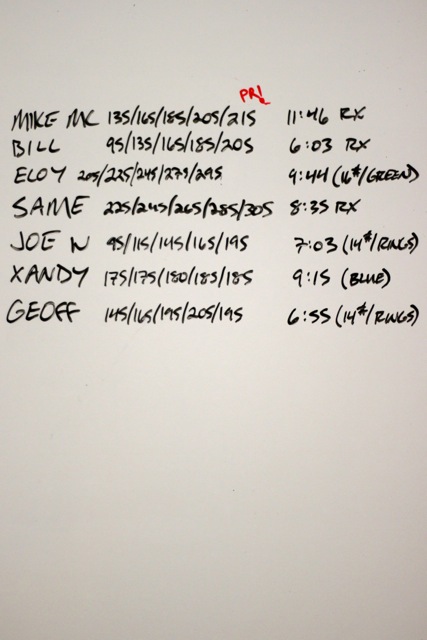 PR!
MIKE MC 135/165/185/205/215 11:46 RX
BILL 95/135/165/185/205 6:03 RX
ELOY 205/225/245/275/295 9:44 (16#/GREEN)
SAME 225/245/265/285/305 8:35 RX
JOE N 95/115/145/165/195 7:03 (14#/RINGS)
XANDY 175/175/180/185/185 9:15 (BLUE)
GEOFF 145/165/195/205/195 6:55 (14#/RINGS)